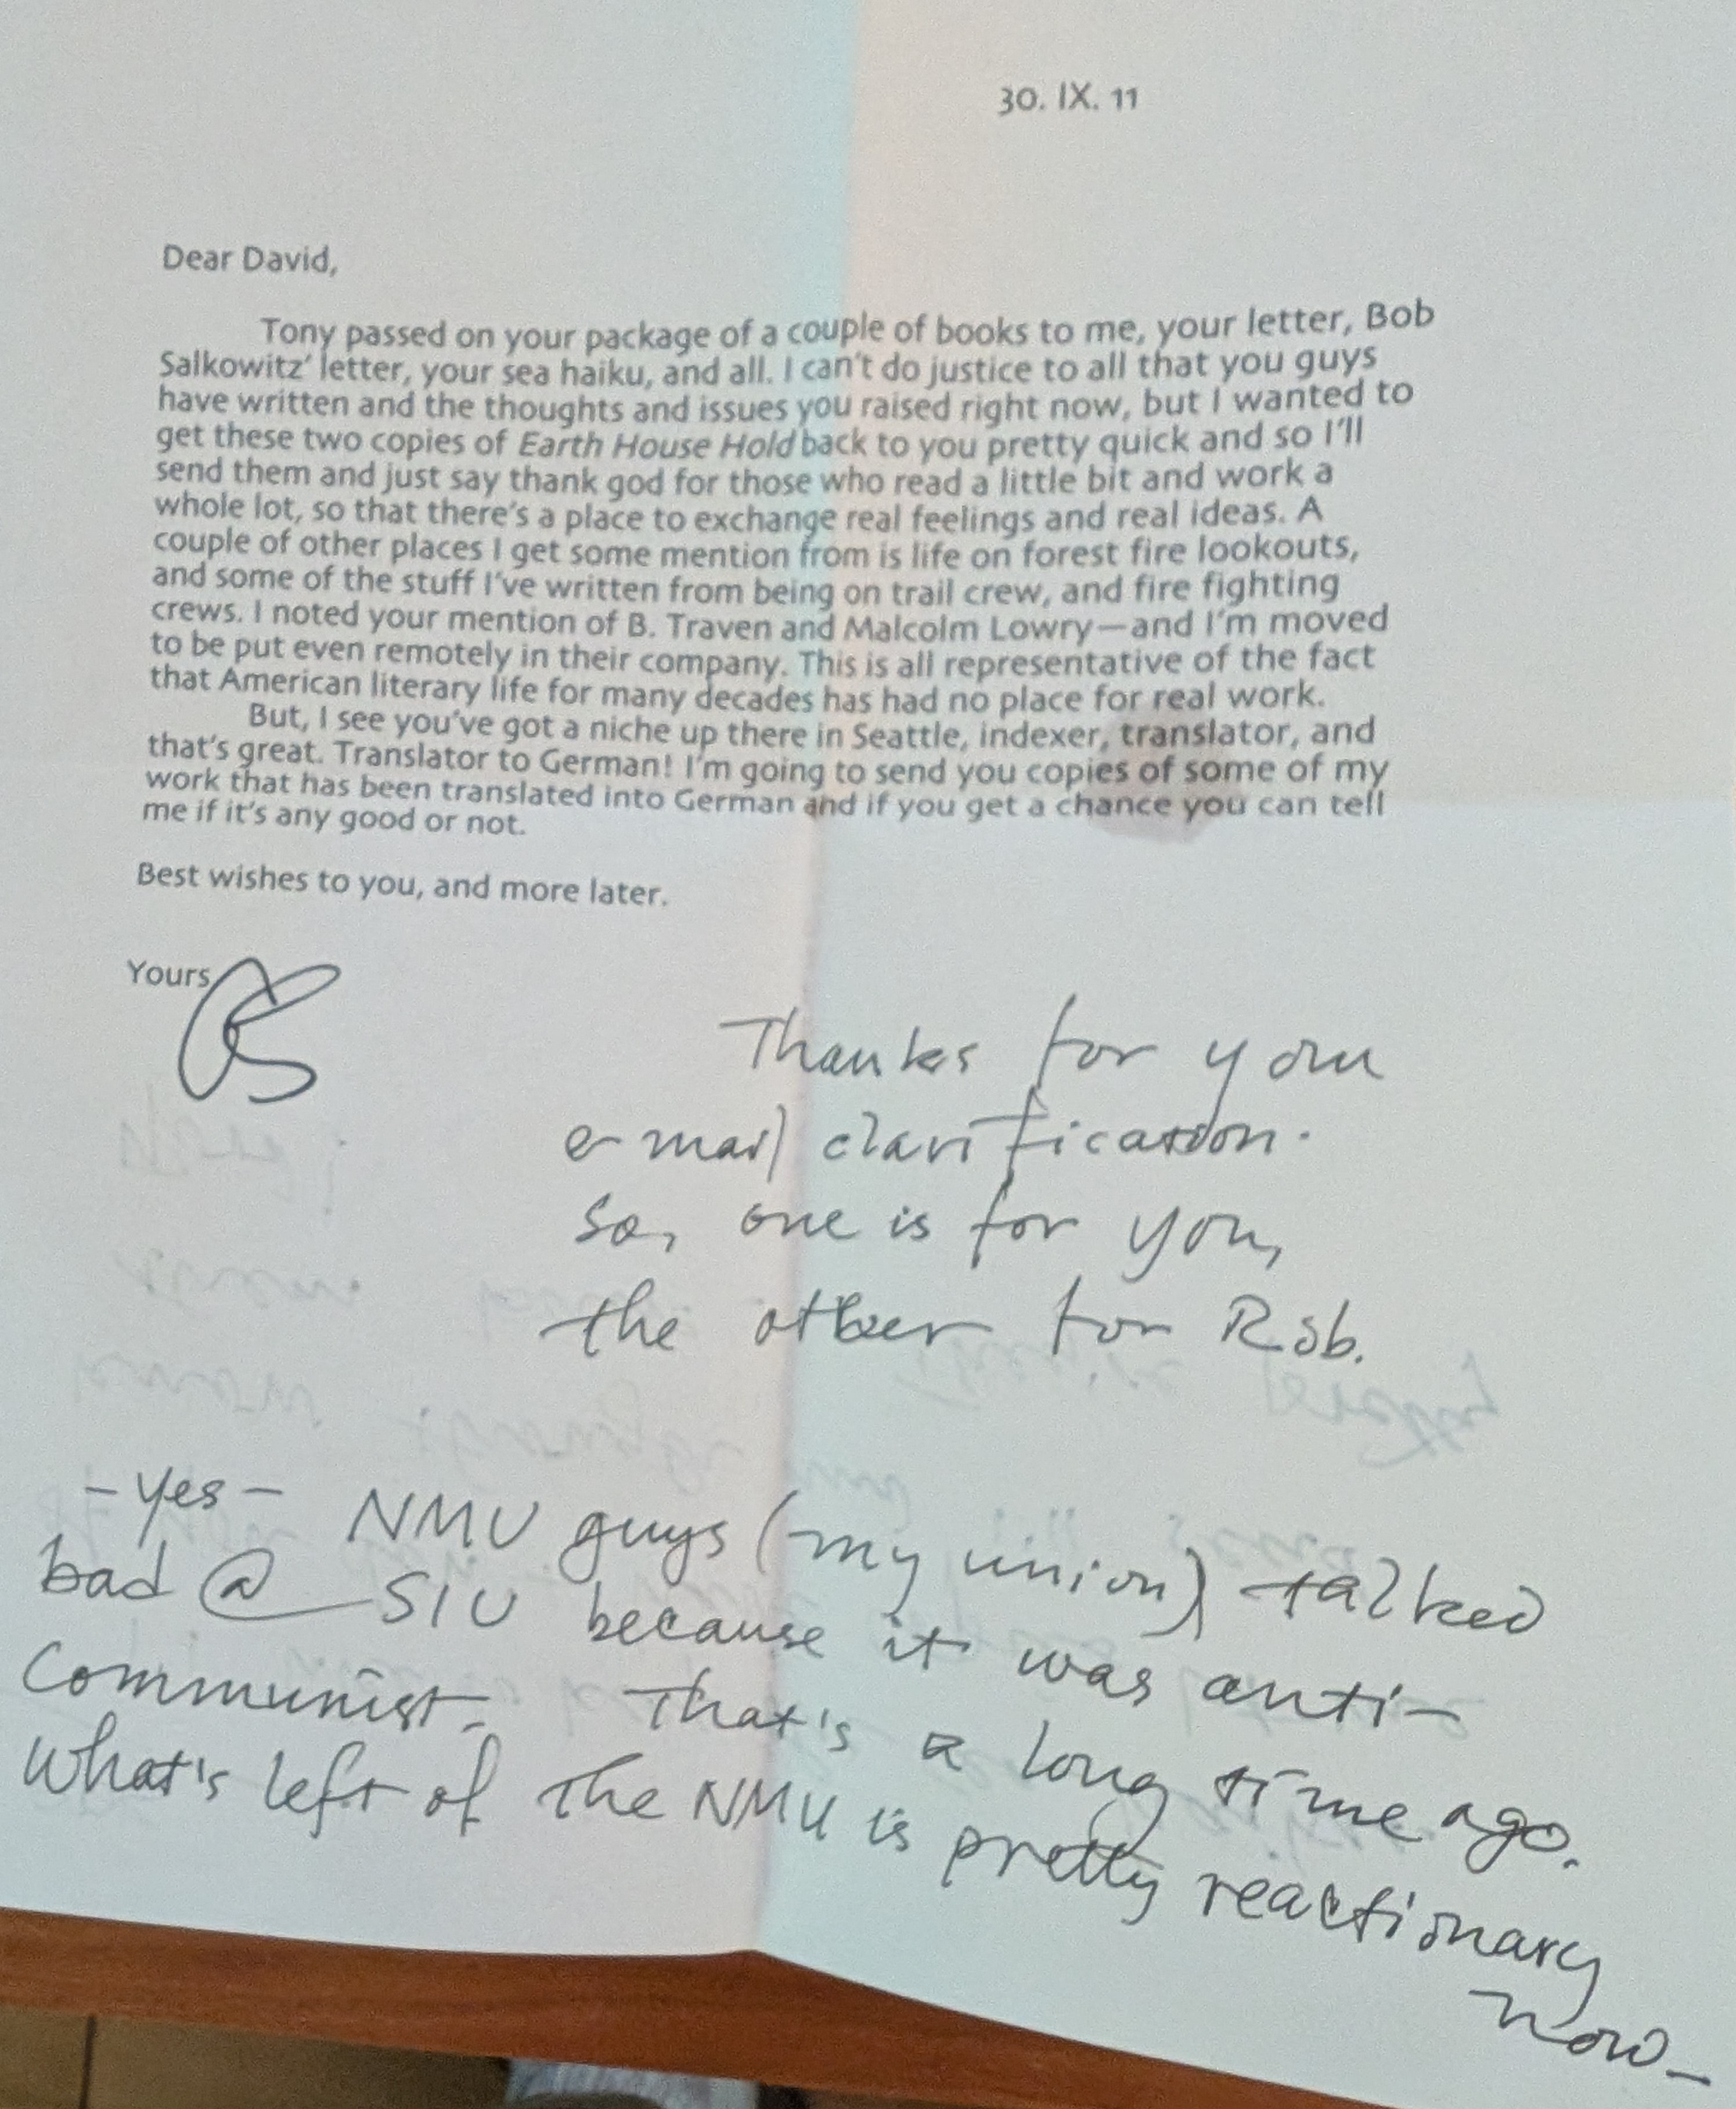 30. IX. 11
Dear David,
Tony passed on your package of a couple of books to me, your letter, Bob
Salkowitz' letter, your sea haiku, and all. I can't do justice to all that you guys
have written and the thoughts and issues you raised right now, but I wanted to
get these two copies of Earth House Hold back to you pretty quick and so I'll
send them and just say thank god for those who read a little bit and work a
whole lot, so that there's a place to exchange real feelings and real ideas. A
couple of other places I get some mention from is life on forest fire lookouts,
and some of the stuff I've written from being on trail crew, and fire fighting
crews. I noted your mention of B. Traven and Malcolm Lowry—and I'm moved
to be put even remotely in their company. This is all representative of the fact
that American literary life for many decades has had no place for real work.
But, I see you've got a niche up there in Seattle, indexer, translator, and
that's great. Translator to German! I'm going to send you copies of some of my
work that has been translated into German and if you get a chance you can tell
me if it's any good or not.
Best wishes to you, and more later.
Yours,
Thanks for your
e-mail clarification.
So, one is for you,
the other for Rob.
- Yes - NMU guys (my union) talked
bad @ SIU because it was anti-
Communist. That's a long time ago.
What's left of the NMU is pretty reactionary
now -